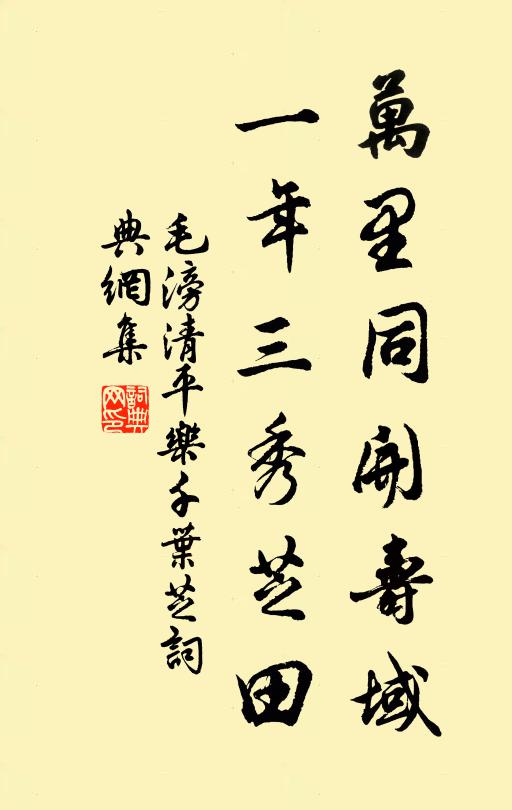 萬里同開壽域
一年三秀芝田
毛滂清平樂千葉芝詞
典網集
詞典網印